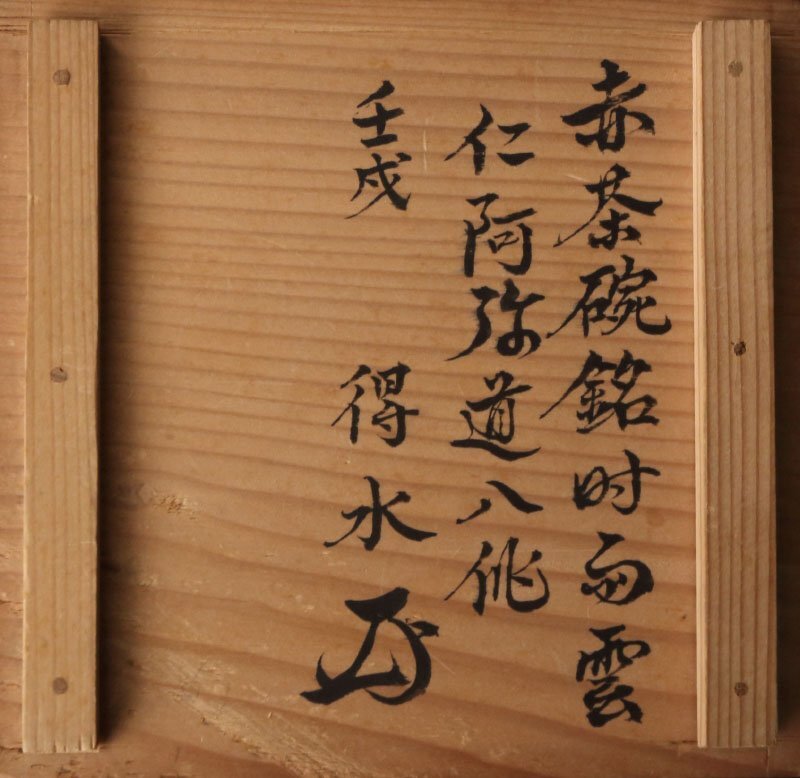 赤茶碗銘时雨雲
仁阿弥道八作
壬戌
得水